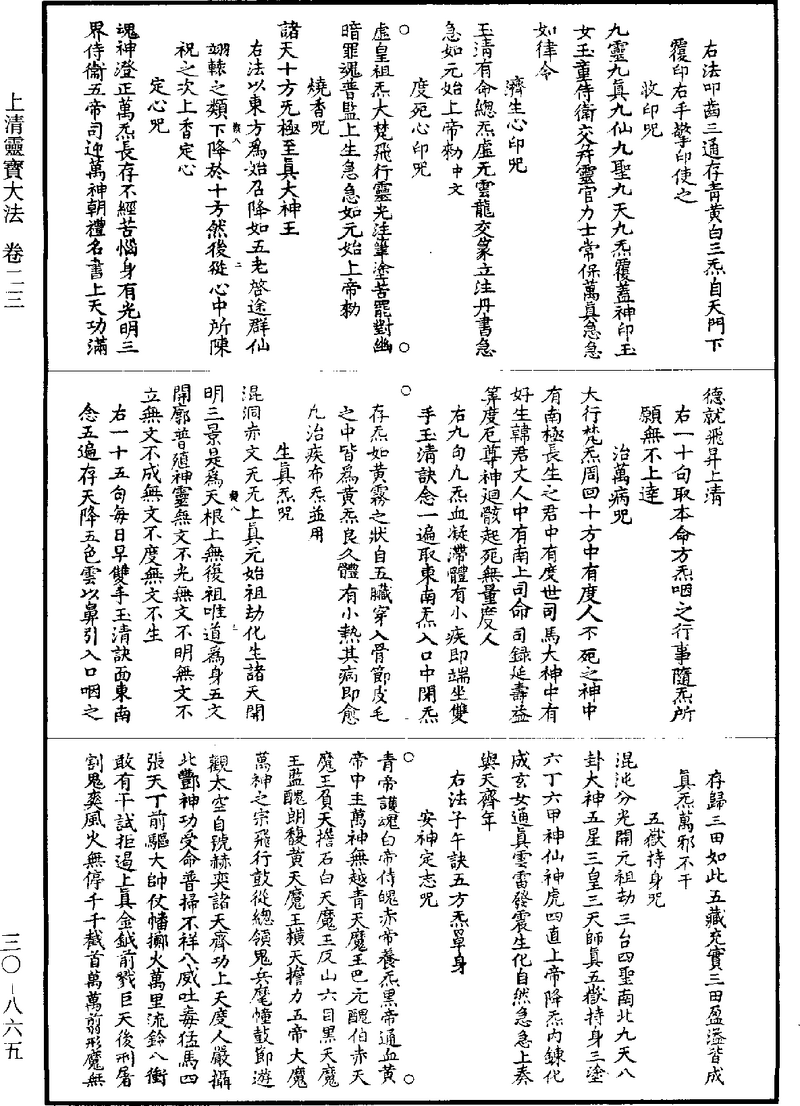 上清靈寶大法　卷二三
三〇－八六五
右法叩齒三通存青黃白三炁自天門下
覆印右手擎印使之
收印咒
九靈九真九仙九聖九天九炁覆蓋神印玉
女玉童侍衛交并靈官力士常保萬真急急
如律令
濟生心印咒
玉清有命總炁虛无雲龍交篆立注丹書急
急如元始上帝勑中文
度死心印咒
虛皇祖炁大梵飛行靈光注筆塗苦罷對幽
暗罪魂普監上生急急如元始上帝勑
燒香咒
諸天十方无極至真大神王
右法以東方為始召降如五老啓途群仙
翊轅之類下降於十方然後從心中所陳
祝之次上香定心
定心咒
魂神澄正萬炁長存不經苦惱身有光明三
界侍衛五帝司迎萬神朝禮名書上天功滿
德就飛昇上清
右一十句取本命方炁咽之行事隨炁所
願無不上達
治萬病咒
大行梵炁周回十方中有度人不死之神中
有南極長生之君中有度世司馬大神中有
好生韓君丈人中有南上司命司錄延壽益
筭度厄尊神迴骸起死無量度人
右九句九炁血凝滯體有小疾即端坐雙
手玉清訣念一遍取東南炁入口中閉炁
存炁如黃霧之狀自五臟穿入骨節皮毛
之中皆為黃炁良久體有小熱其病即愈
凡治疾布炁並用
生真炁咒
混洞赤文无无上真元始祖劫化生諸天開
明三景是為天根上無復祖唯道為身五文
開廓普殖神靈無文不光無文不明無文不
立無文不成無文不度無文不生
右一十五句每日早雙手玉清訣面東南
念五遍存天降五色雲以鼻引入口咽之
存歸三田如此五藏充實三田盈溢皆成
真炁萬邪不干
五嶽持身咒
混沌分光開元祖劫三台四聖南北九天八
卦大神五星三皇三天師真五嶽持身三塗
六丁六甲神仙神虎四直上帝降炁內鍊化
成玄女通真雲雷發震生化自然急急上奏
與天齊年
右法子午訣五方炁罩身
安神定志咒
青帝護魂白帝侍魄赤帝養炁黑帝通血黃
帝中主萬神無越青天魔王巴元醜伯赤天
魔王負天擔石白天魔王反山六目黑天魔
王監醜朗馥黃天魔王橫天擔力五帝大魔
萬神之宗飛行鼓從總領鬼兵麾幢鼓節遊
觀太空自號赫奕諸天齊功上天度人嚴攝
北酆神功受命普掃不祥八威吐毒猛馬四
張天丁前驅大帥仗幡擲火萬里流鈴八衝
敢有干試拒遏上真金鉞前戮巨天後刑屠
割鬼爽風火無停千千截首萬萬剪形魔無